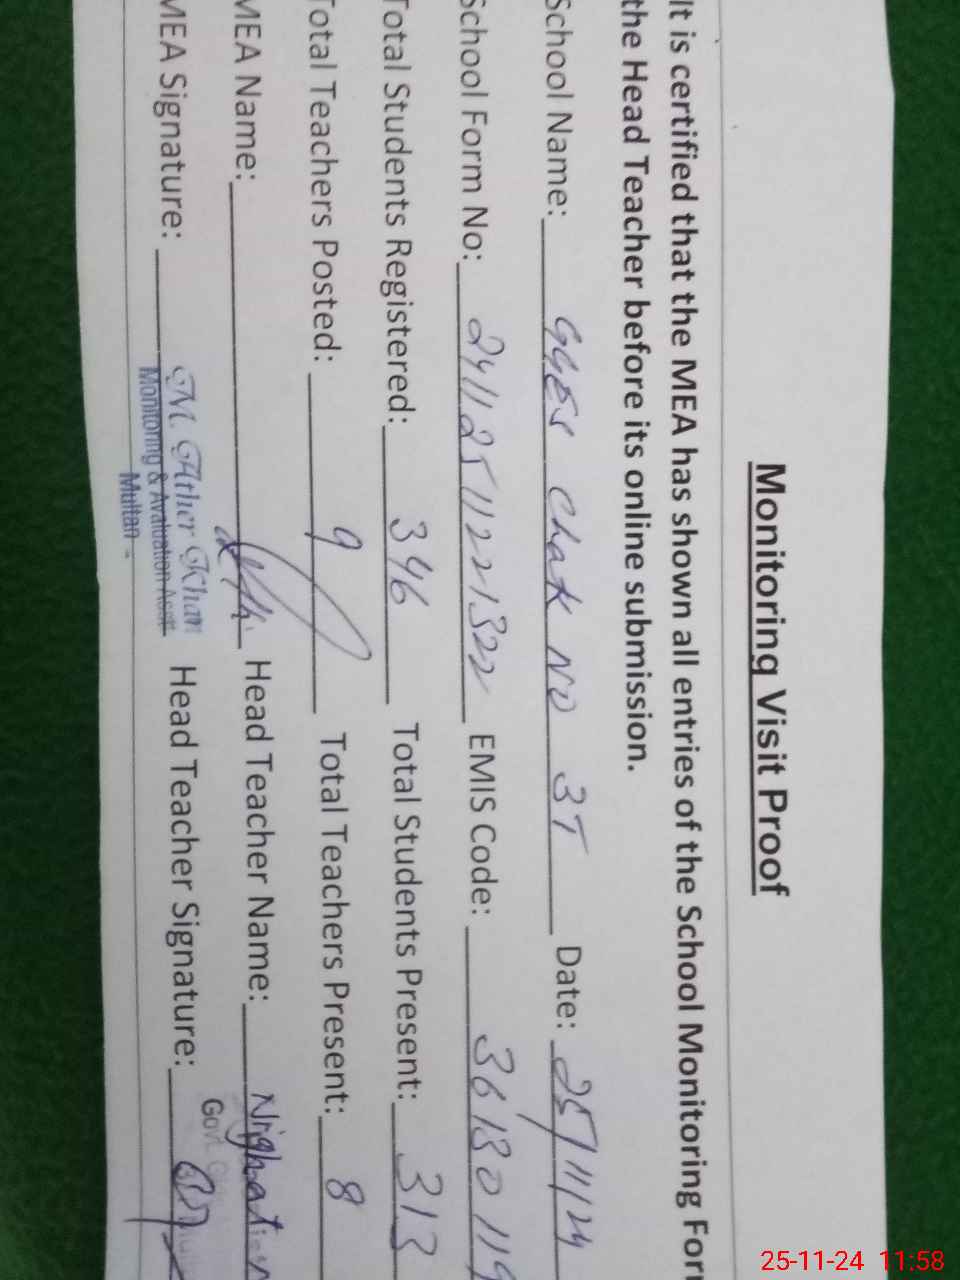 Monitoring Visit Proof
It is certified that the MEA has shown all entries of the School Monitoring For
the Head Teacher before its online submission.
School Name: GGES Chak NO 3T Date: 25/11/24
School Form No: 24112511221322 EMIS Code: 36130119
Total Students Registered: 346 Total Students Present: 313
Total Teachers Posted: 9 Total Teachers Present: 8
MEA Name: Head Teacher Name: Nighat
MEA Signature: M. Ather Khan Head Teacher Signature: Govt.
Monitoring & Avaluation Asstt
Multan
25-11-24 11:58